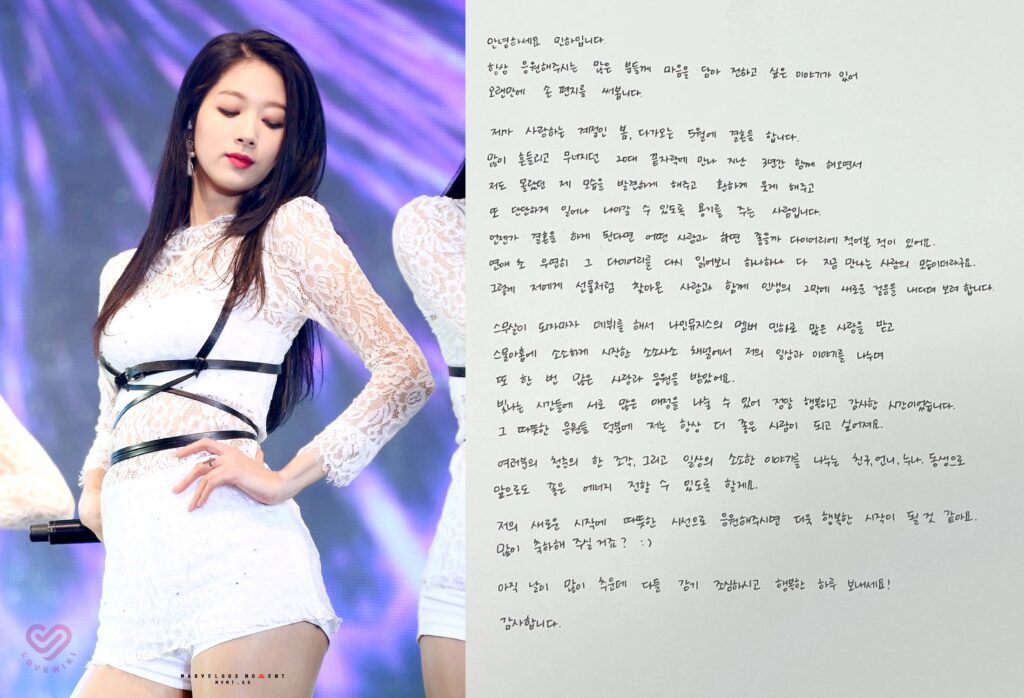 안녕하세요 민하입니다.
항상 응원해주시는 많은 분들께 마음을 담아 전하고 싶은 이야기가 있어
오랜만에 손 편지를 써봅니다.
제가 사랑하는 계절인 봄, 다가오는 5월에 결혼을 합니다.
많이 흔들리고 무너지던 20대 끝자락에 만나 지난 3년간 함께 해오면서
저도 몰랐던 제 모습을 발견하게 해주고 환하게 웃게 해주고
또 단단하게 일어나 나아갈 수 있도록 용기를 주는 사람입니다.
언젠가 결혼을 하게 된다면 어떤 사람과 하면 좋을까 다이어리에 적어본 적이 있어요.
연애 초 우연히 그 다이어리를 다시 읽어보니 하나하나 다 지금 만나는 사람의 모습이더라구요.
그렇게 저에게 선물처럼 찾아온 사람과 함께 인생의 2막에 새로운 걸음을 내디뎌 보려 합니다.
스무살이 되자마자 데뷔를 해서 나인뮤지스의 멤버 민하로 많은 사랑을 받고
스몰아홉에 소소하게 시작한 소소사소 채널에서 저의 일상과 이야기를 나누며
또 한 번 많은 사랑과 응원을 받았어요.
빛나는 시간들에 서로 많은 애정을 나눌 수 있어 정말 행복하고 감사한 시간이었습니다.
그 따뜻한 응원들 덕분에 저는 항상 더 좋은 사람이 되고 싶어져요.
여러분의 청춘의 한 조각, 그리고 일상의 소소한 이야기를 나누는 친구, 언니, 누나, 동생으로
앞으로도 좋은 에너지 전할 수 있도록 할게요.
저의 새로운 시작에 따뜻한 시선으로 응원해주시면 더욱 행복한 시작이 될 것 같아요.
많이 축하해 주실거죠? :)
아직 날이 많이 추운데 다들 감기 조심하시고 행복한 하루 보내세요!
감사합니다.
LOVEWIKI
MARVELOUS MOMENT
MVMT.KR